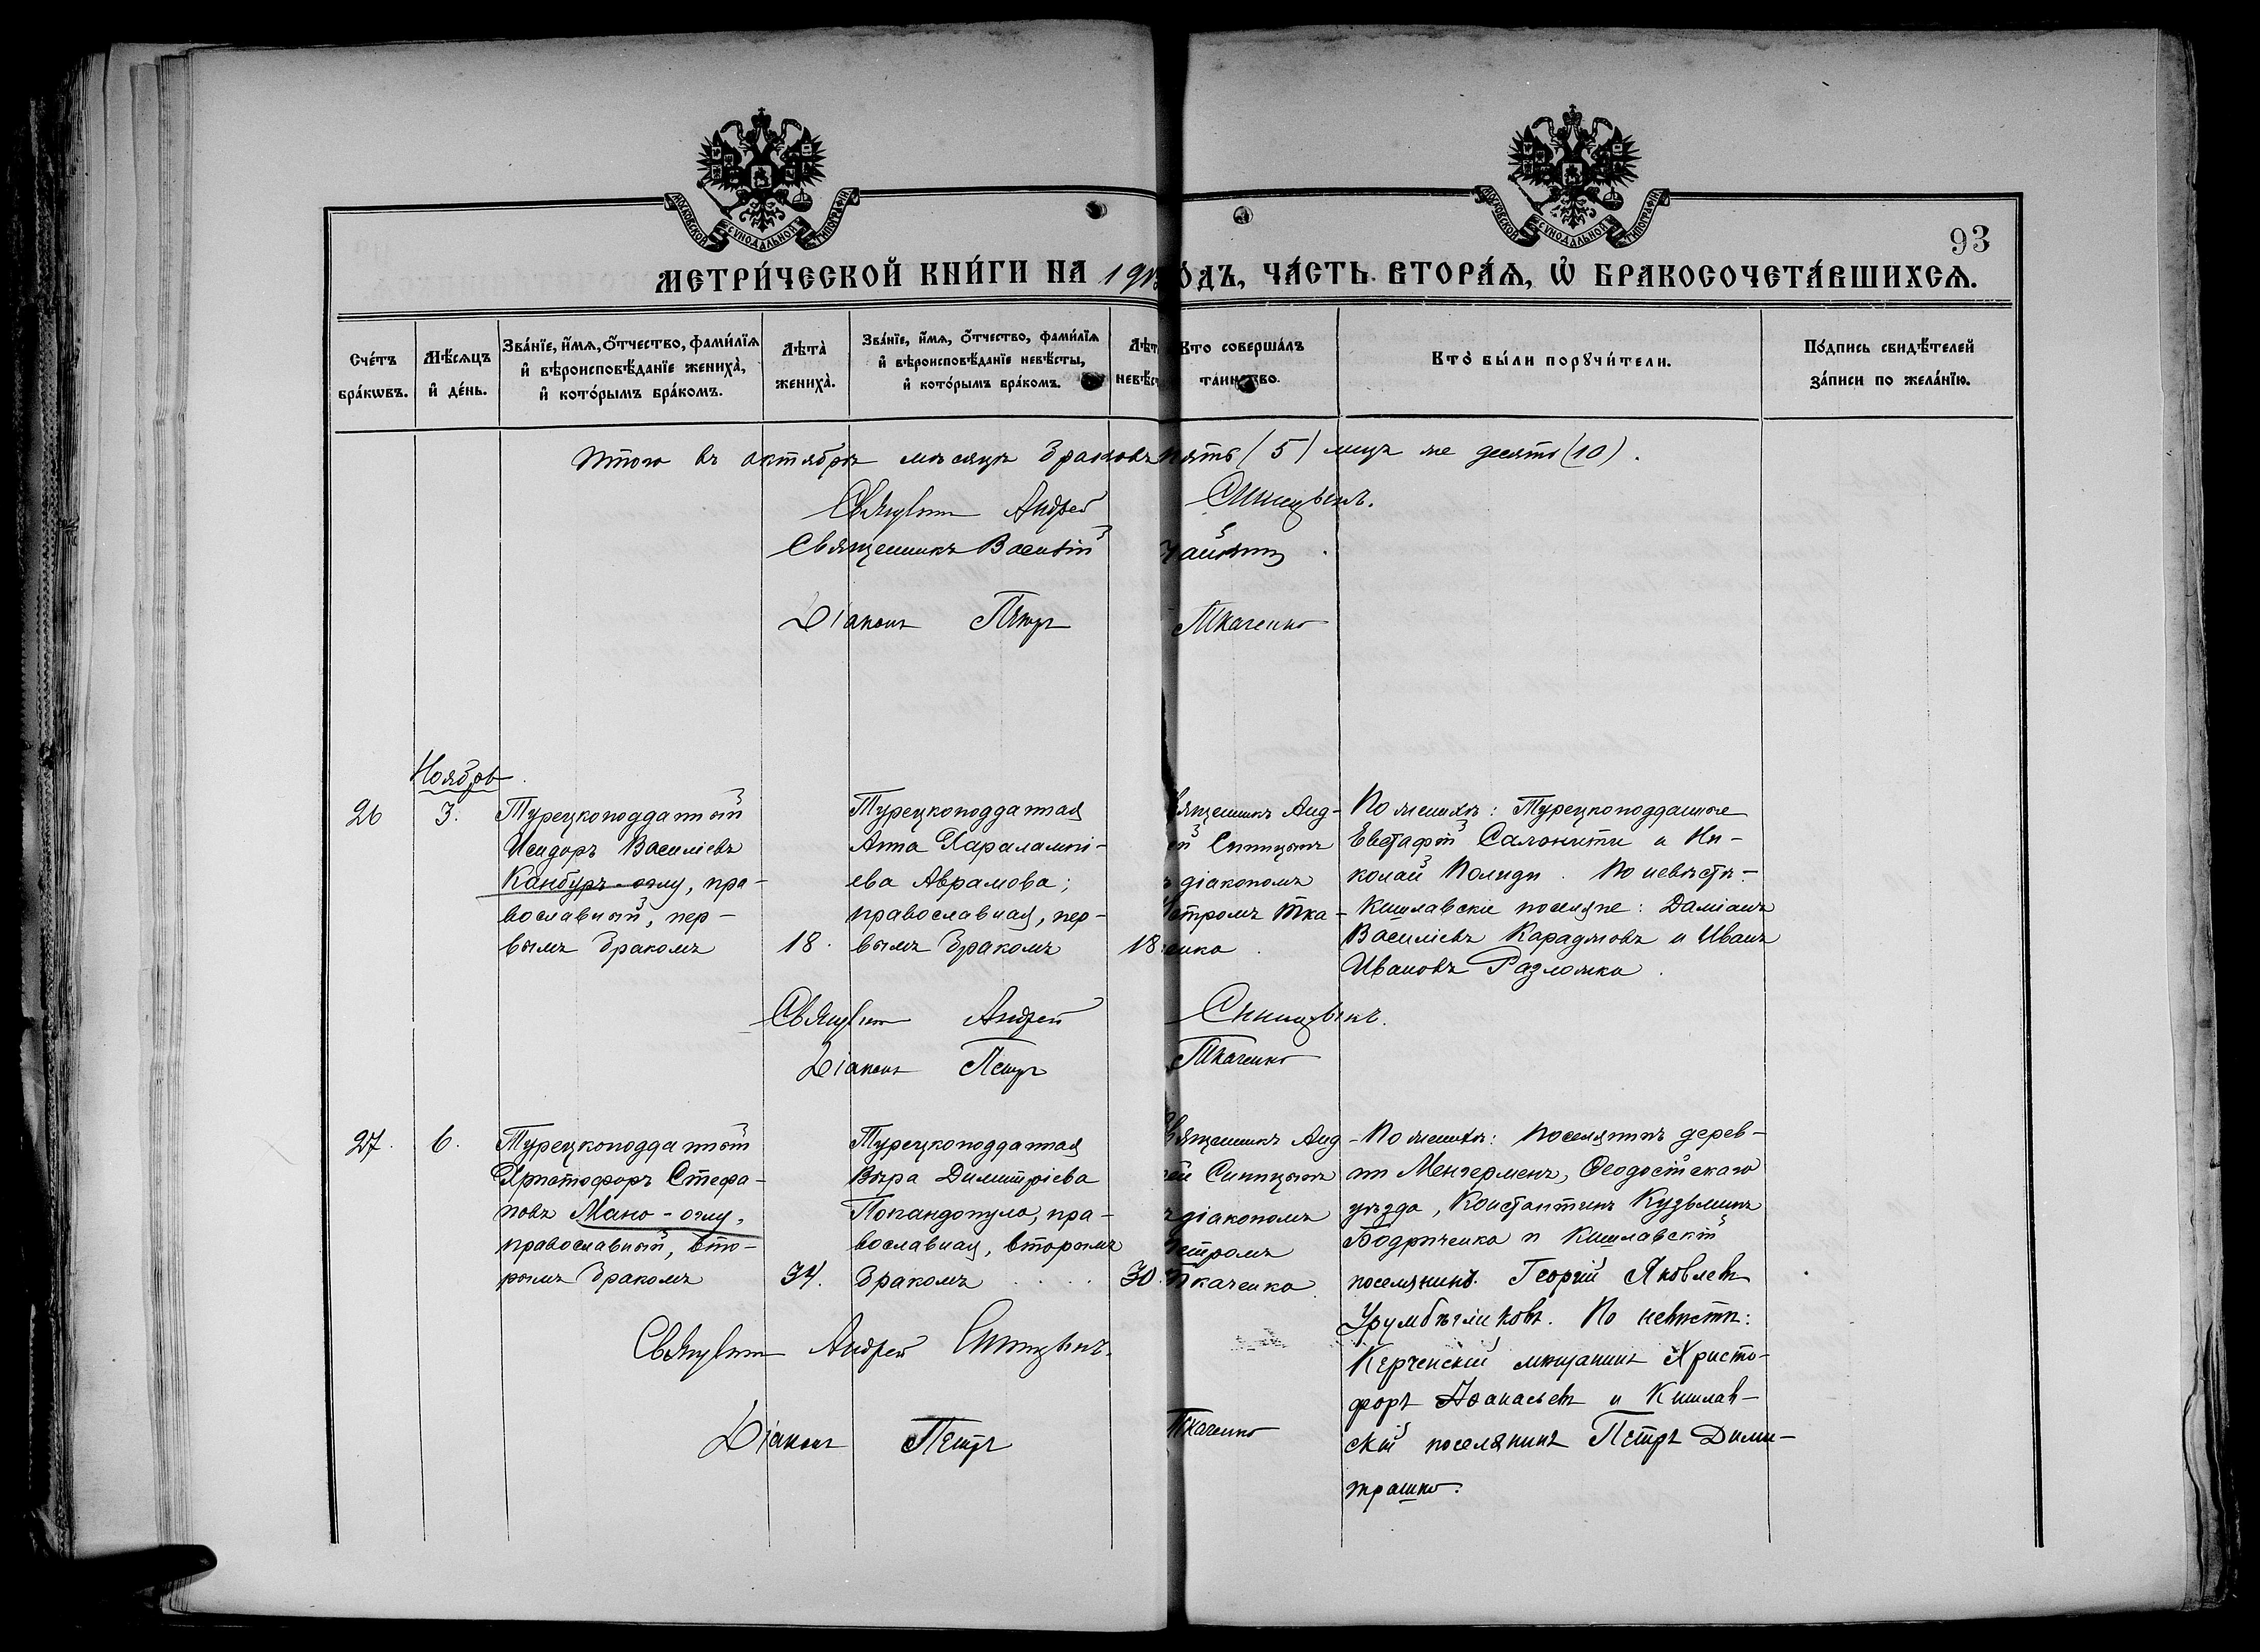 МОСКОВСКОЙ СѴНОДАЛЬНОЙ ТИПОГРАФІИ
МОСКОВСКОЙ СѴНОДАЛЬНОЙ ТИПОГРАФІИ
93
МЕТРИ́ЧЕСКОЙ КНИ́ГИ НА 191 О́ДЪ, ЧА́СТЬ ВТОРА́Я, Ѡ БРАКОСОЧЕТА́ВШИХСЯ.
Сче́тъ бра́кѡвъ.
Мѣ́сяцъ и де́нь.
Зва́нїе, и́мя, о́тчество, фами́лїя и вѣроисповѣ́данїе жениха̀, и кото́рымъ бра́комъ.
Лѣта̀ жениха̀.
Зва́нїе, и́мя, о́тчество, фами́лїя и вѣроисповѣ́данїе невѣ́сты, и кото́рымъ бра́комъ.
Лѣт невѣ́с
Кто соверша́лъ та́инство.
Кто̀ бы́ли порꙋчи́тели.
По́дпись свидѣ́телей за́писи по жела́нїю.
Итого въ октябрѣ мѣсяцѣ браковъ пять (5) лицъ же десять (10).
Священникъ Андрей Синицынъ.
Священникъ Василій
Діаконъ Петръ Ткаченко
Ноябрь
26
3.
Турецкоподданный
Исидоръ Василіевъ
Канбуръ-оглу, пра-
вославный, пер-
вымъ бракомъ
18.
Турецкоподданная
Анна Харалампі-
ева Аврамова;
православная, пер-
вымъ бракомъ
18
вященникъ Анд-
ей Синицынъ
ъ діакономъ
етромъ Тка-
енко.
По женихѣ: Турецкоподданные
Евстафій Салонити и Ни-
колай Полиди. По невѣстѣ:-
Кишлавскіе поселяне: Даміанъ
Василіевъ Караджовъ и Иванъ
Ивановъ Разложко.
Священникъ Андрей Синицынъ.
Діаконъ Петръ Ткаченко
27.
6.
Турецкоподданный
Христофоръ Стефа-
новъ Мано-оглу,
православный, вто-
рымъ бракомъ
34.
Турецкоподданная
Вѣра Димитріева
Попандопуло, пра-
вославная, вторымъ
бракомъ
30.
вященникъ Анд-
ей Синицынъ
ъ діакономъ
етромъ
Ткаченко.
По женихѣ: поселянинъ дерев-
ни Менгерменъ, Ѳеодосійскаго
уѣзда, Константинъ Кузьминъ
Бодриченко и Кишлавскій
поселянинъ Георгій Яковлевъ
Урумбѣгликовъ. По невѣстѣ:
Керченскій мѣщанинъ Христо-
форъ Аѳанасьевъ и Кишлав-
скій поселянинъ Петръ Дими-
трашко.
Священникъ Андрей Синицынъ.
Діаконъ Петръ Ткаченко